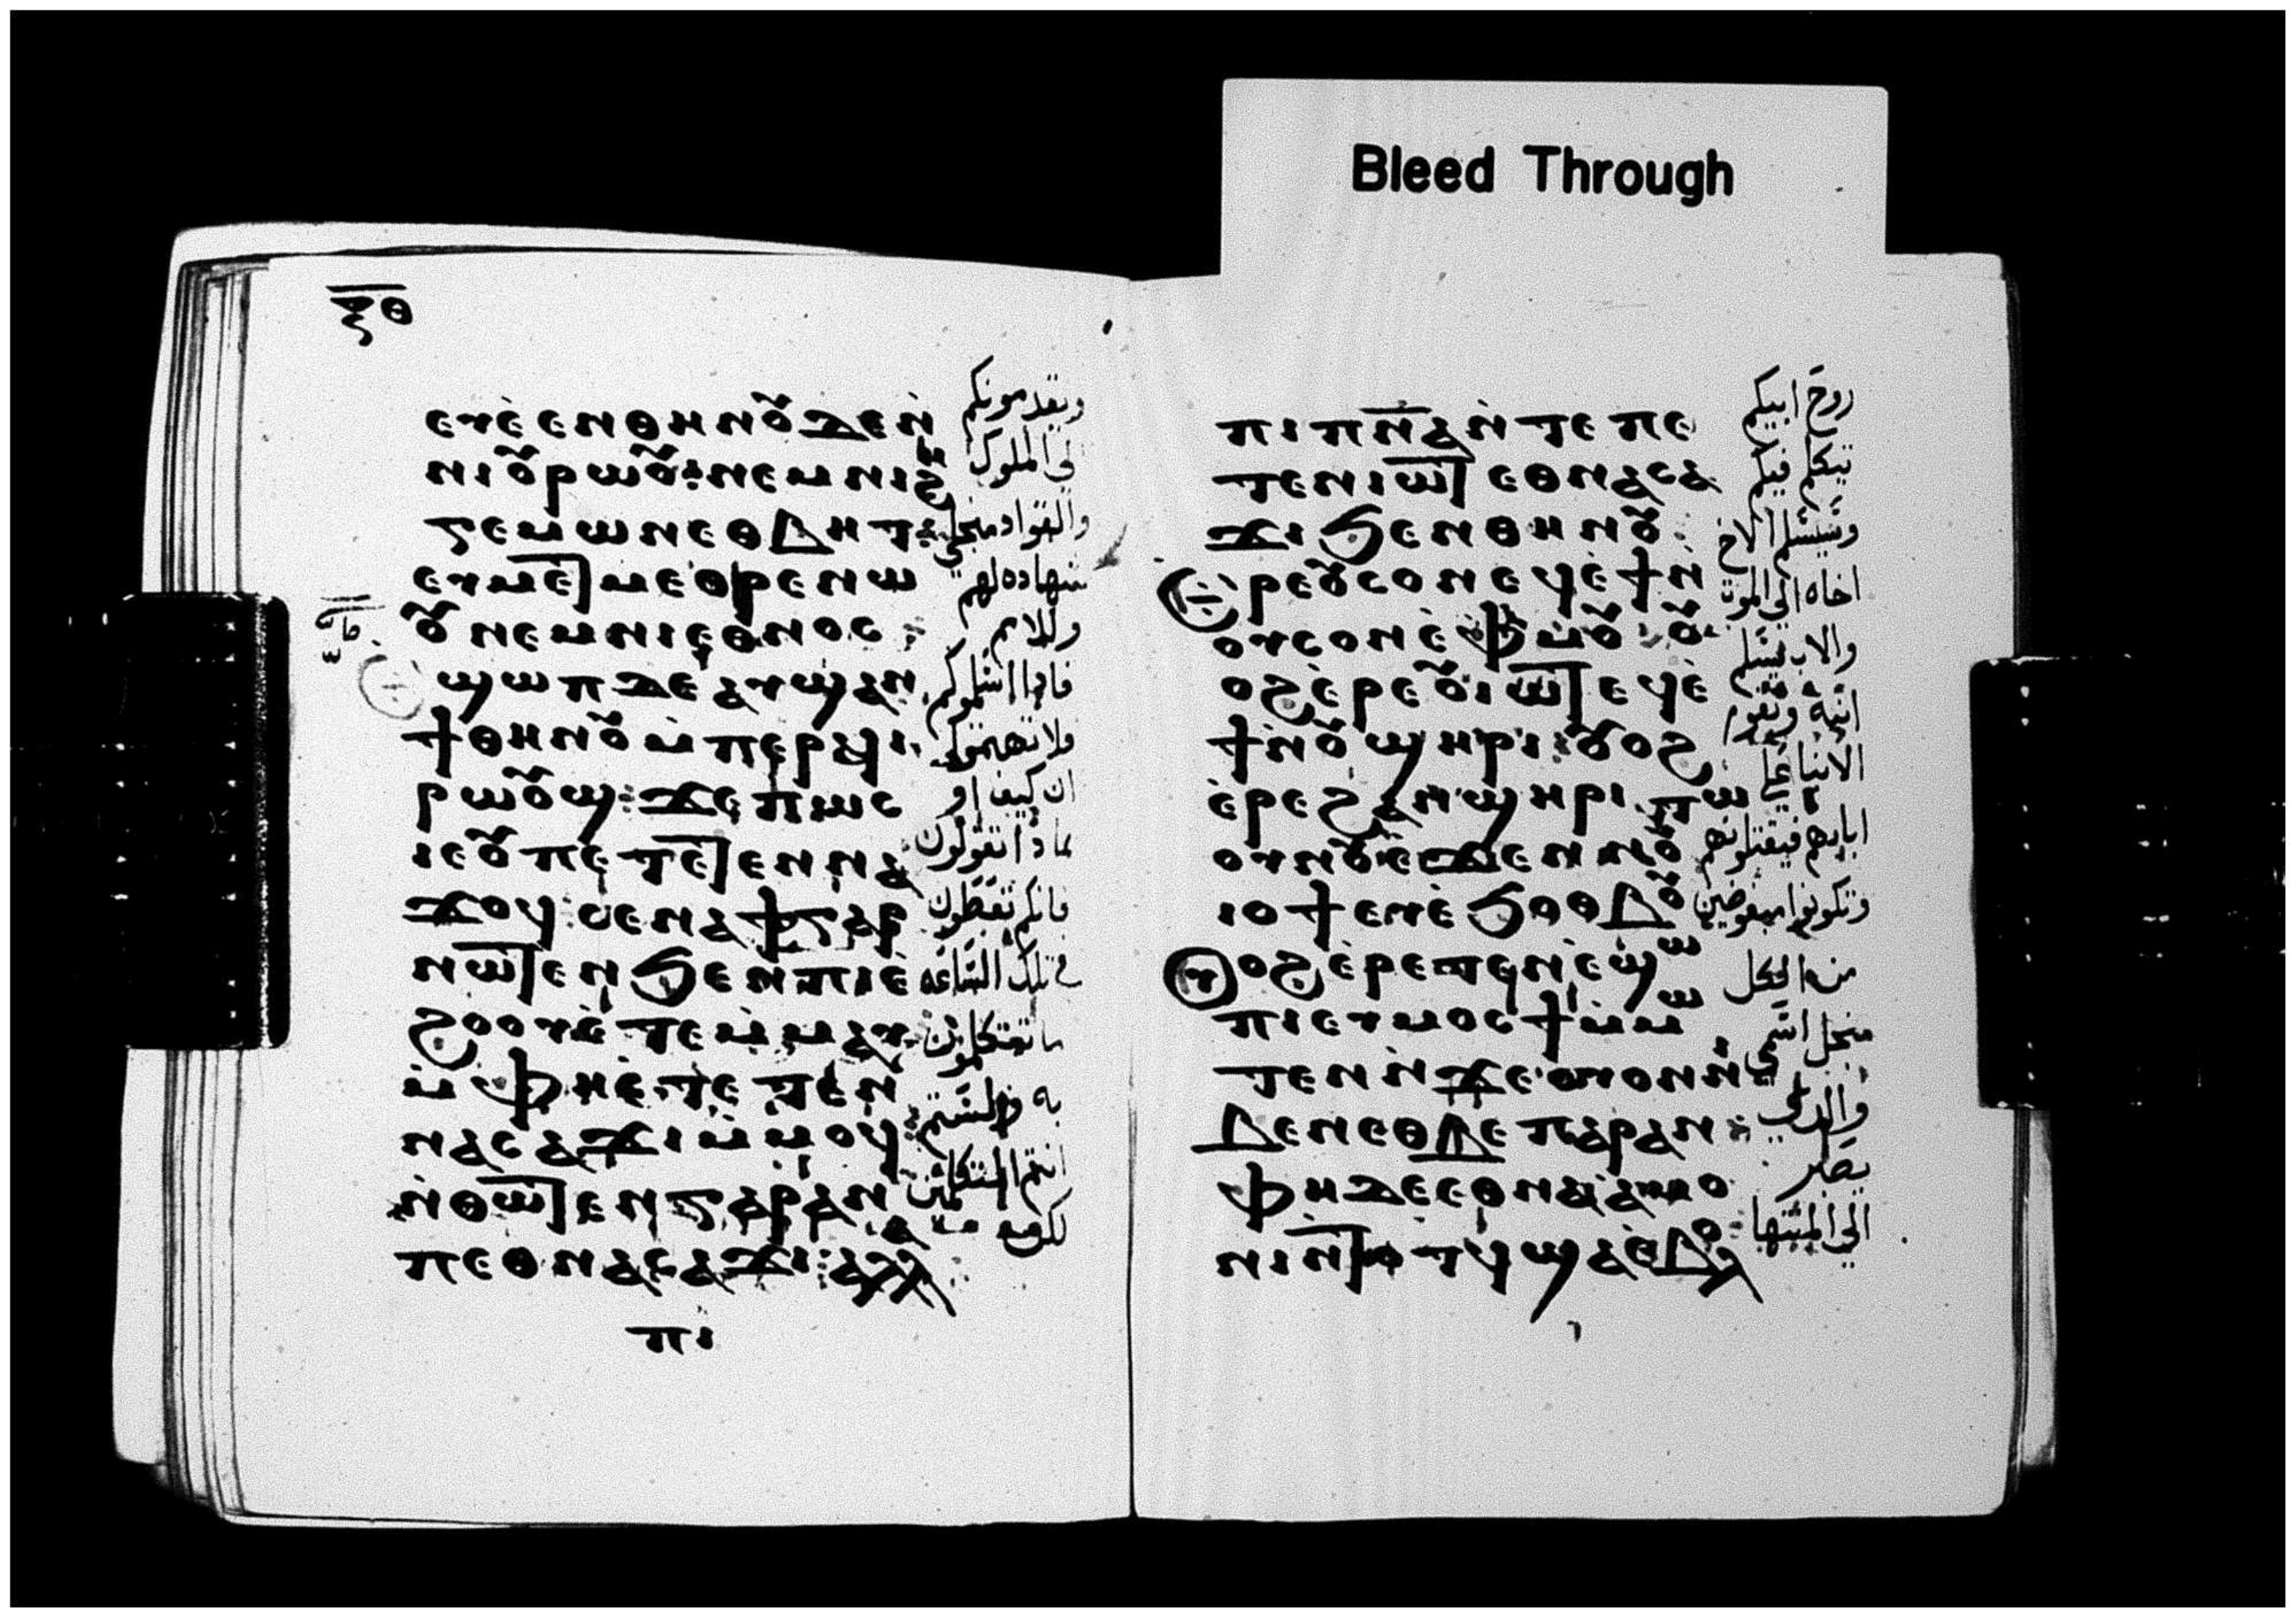 ⲝⲑ
ⲉⲩⲉ̀ⲉⲛⲑⲏⲛⲟⲩ ⲇⲉ ⲛ̀
ⲛⲓⲟⲩⲣⲱⲟⲩ: ⲛⲉⲙ ⲛⲓϩⲏ
ⲅⲉⲙⲱⲛ ⲉⲑⲃⲏⲧ:
ⲉⲩⲙⲉⲧⲙⲉⲑⲣⲉ ⲛⲱ
ⲟⲩ ⲛⲉⲙ ⲛⲓⲉⲑⲛⲟⲥ:
ϣⲱⲡ ⲇⲉ ⲁⲩϣⲁⲛ
ϯⲑⲏⲛⲟⲩ ⲙ̀ⲡⲉⲣϥⲓ
ⲣⲱⲟⲩϣ: ϫⲉ ⲡⲱⲥ
ⲓⲉ ⲟⲩ ⲡⲉⲧⲉⲧⲉⲛⲛⲁ
ϫⲟϥ: ⲥⲉⲛⲁϯ ⲅⲁⲣ
ⲛⲱⲧⲉⲛ ϧⲉⲛ ⲡⲓⲉ̀
ϩⲟⲟⲩ ⲉ̀ⲧⲉⲙ̀ⲙⲁⲩ
ⲙ̀ⲫⲏ ⲉ̀ⲧⲉⲧⲉⲛ
ⲛⲁⲥⲁϫⲓ ⲙ̀ⲙⲟϥ:
ⲛ̀ⲑⲱⲧⲉⲛ ⲅⲁⲣ ⲁⲛ
ⲡⲉⲑⲛⲁⲥⲁϫⲓ: ⲁⲗⲗⲁ
ⲡⲓ
ويقدمونكم
الي الملوك
والقواد منجلي
شهاده لهم
وللامم
فاذا اسلموكم
فلا تهتموا
ان كيف او
بماذا تقولون
فانكم تعطون
في تلك الساعه
ما تتكلمون
به فلستم
انتم المتكلمين
لكن
Bleed Through
ⲡⲓⲡⲛ̅ⲁ̅ ⲛ̀ⲧⲉ ⲡⲉ
ⲧⲉⲛⲓⲱⲧ ⲉⲑⲛⲁⲥⲁ
ϫⲓ ϧⲉⲛ ⲑⲏⲛⲟⲩ:
ⲉⲣⲉ ⲟⲩⲥⲟⲛ ⲉϥⲉ̀ϯ ⲛ̀
ⲟⲩⲥⲟⲛ ⲉ̀ⲫⲙⲟⲩ: ⲟⲩ
ⲟϩ ⲉ̀ⲣⲉ ⲟⲩⲓⲱⲧ ⲉϥⲉ̀
ϯ ⲛ̀ⲟⲩϣⲏⲣⲓ: ⲟⲩⲟϩ
ⲉ̀ⲣⲉ ϩⲁⲛϣⲏⲣⲓ ⲧⲱ
ⲟⲩⲛⲟⲩ ⲉ̀ϫⲉⲛ ⲛⲟⲩ
ⲓⲟϯ ⲉⲩⲉ̀ϧⲟⲑⲃⲟⲩ
ⲟⲩⲟϩ ⲉ̀ⲣⲉⲧⲉⲛⲉ̀ϣⲱ
ⲡⲓ ⲉⲩⲙⲟⲥϯ ⲙ̀ⲙⲱ
ⲧⲉⲛ ⲛ̀ϫⲉ ⲟⲩⲟⲛ ⲛⲓ
ⲃⲉⲛ ⲉⲑⲃⲉ ⲡⲁⲣⲁⲛ:
ⲫⲏ ⲇⲉ ⲉⲑⲛⲁⲁ̀ⲙⲟ
ⲛⲓ ⲛ̀ⲧⲟⲧϥ ϣⲁ ⲉ̀ⲃⲟⲗ
روح ابيكم
يتكلم فيكم
وسيسلم الاخ
اخاه الي الموت
والاب يسلم
ابنه وتقوم
الابنا علي
ابايهم فيقتلونهم
وتكونوا مبغوضين
من الكل
منجل اسمي
والذي
يصبر
الي المنتها